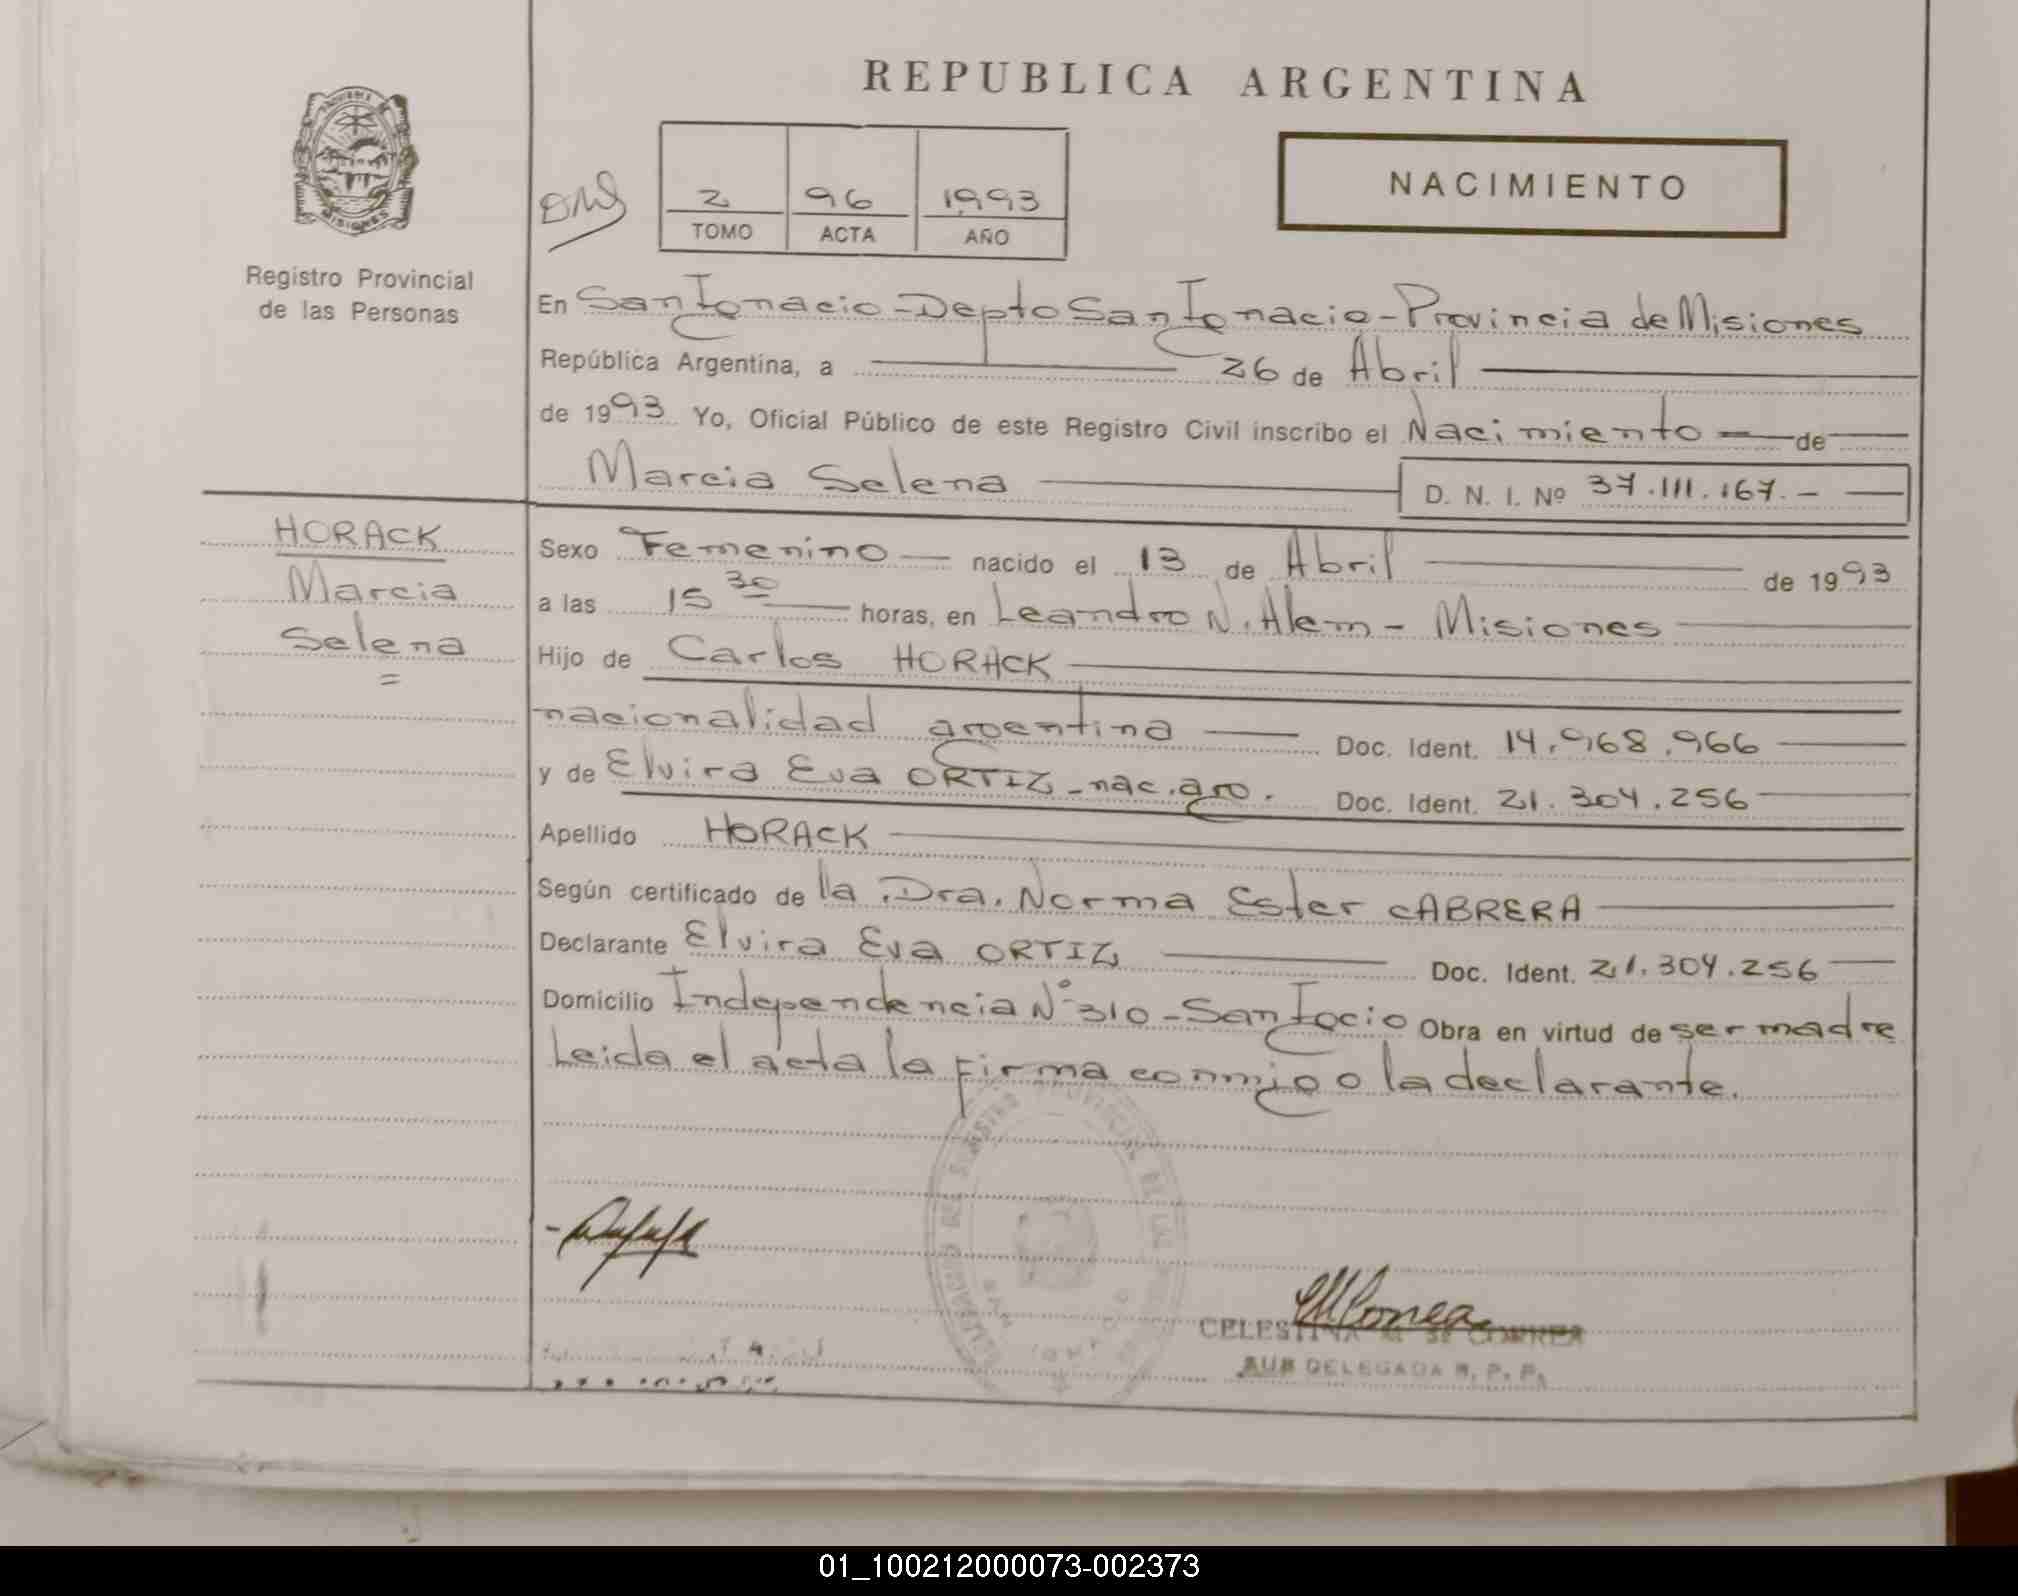 REPUBLICA ARGENTINA
NACIMIENTO
2 96 1993
TOMO ACTA AÑO
Registro Provincial
de las Personas
En San Ignacio - Depto San Ignacio - Provincia de Misiones
República Argentina, a 26 de Abril
de 1993 Yo, Oficial Público de este Registro Civil inscribo el Nacimiento de
Marcia Selena D. N. I. Nº 37.111.167.-
HORACK
Marcia
Selena
Sexo Femenino nacido el 13 de Abril de 1993
a las 15 30 horas, en Leandro N. Alem - Misiones
Hijo de Carlos HORACK
nacionalidad argentina Doc. Ident. 14.968.966
y de Elvira Eva ORTIZ - nac. arg. Doc. Ident. 21.304.256
Apellido HORACK
Según certificado de la Dra. Norma Ester CABRERA
Declarante Elvira Eva ORTIZ Doc. Ident. 21.304.256
Domicilio Independencia Nº 310 - San Igcio Obra en virtud de ser madre
Leida el acta la firma conmigo la declarante.
CELESTINA M. DE CORREA
SUB DELEGADA R. P. P.
01_100212000073-002373